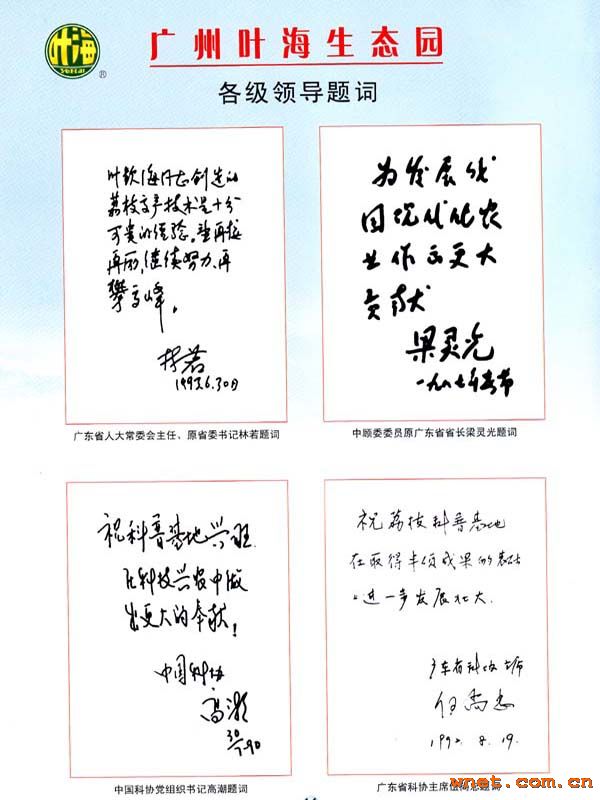 叶海
®
广州叶海生态园
各级领导题词
叶钦海同志创造的
荔枝高产技术是十分
可贵的经验。望再接
再厉,继续努力、再
攀高峰。
林若
199 .6.30日
广东省人大常委会主任、原省委书记林若题词
为发展我
国现代化农
业作出更大
贡献
梁灵光
一九八七年春节
中顾委委员原广东省省长梁灵光题词
祝科普基地兴旺
在科技兴农中做
出更大的奉献!
中国科协
高潮
30
90
中国科协党组织书记高潮题词
祝荔枝科普基地
在取得丰硕成果的基础
上进一步发展壮大.
广东省科协主席
199 . 8. 19.
广东省科协主席
题词
wnet.com.cn